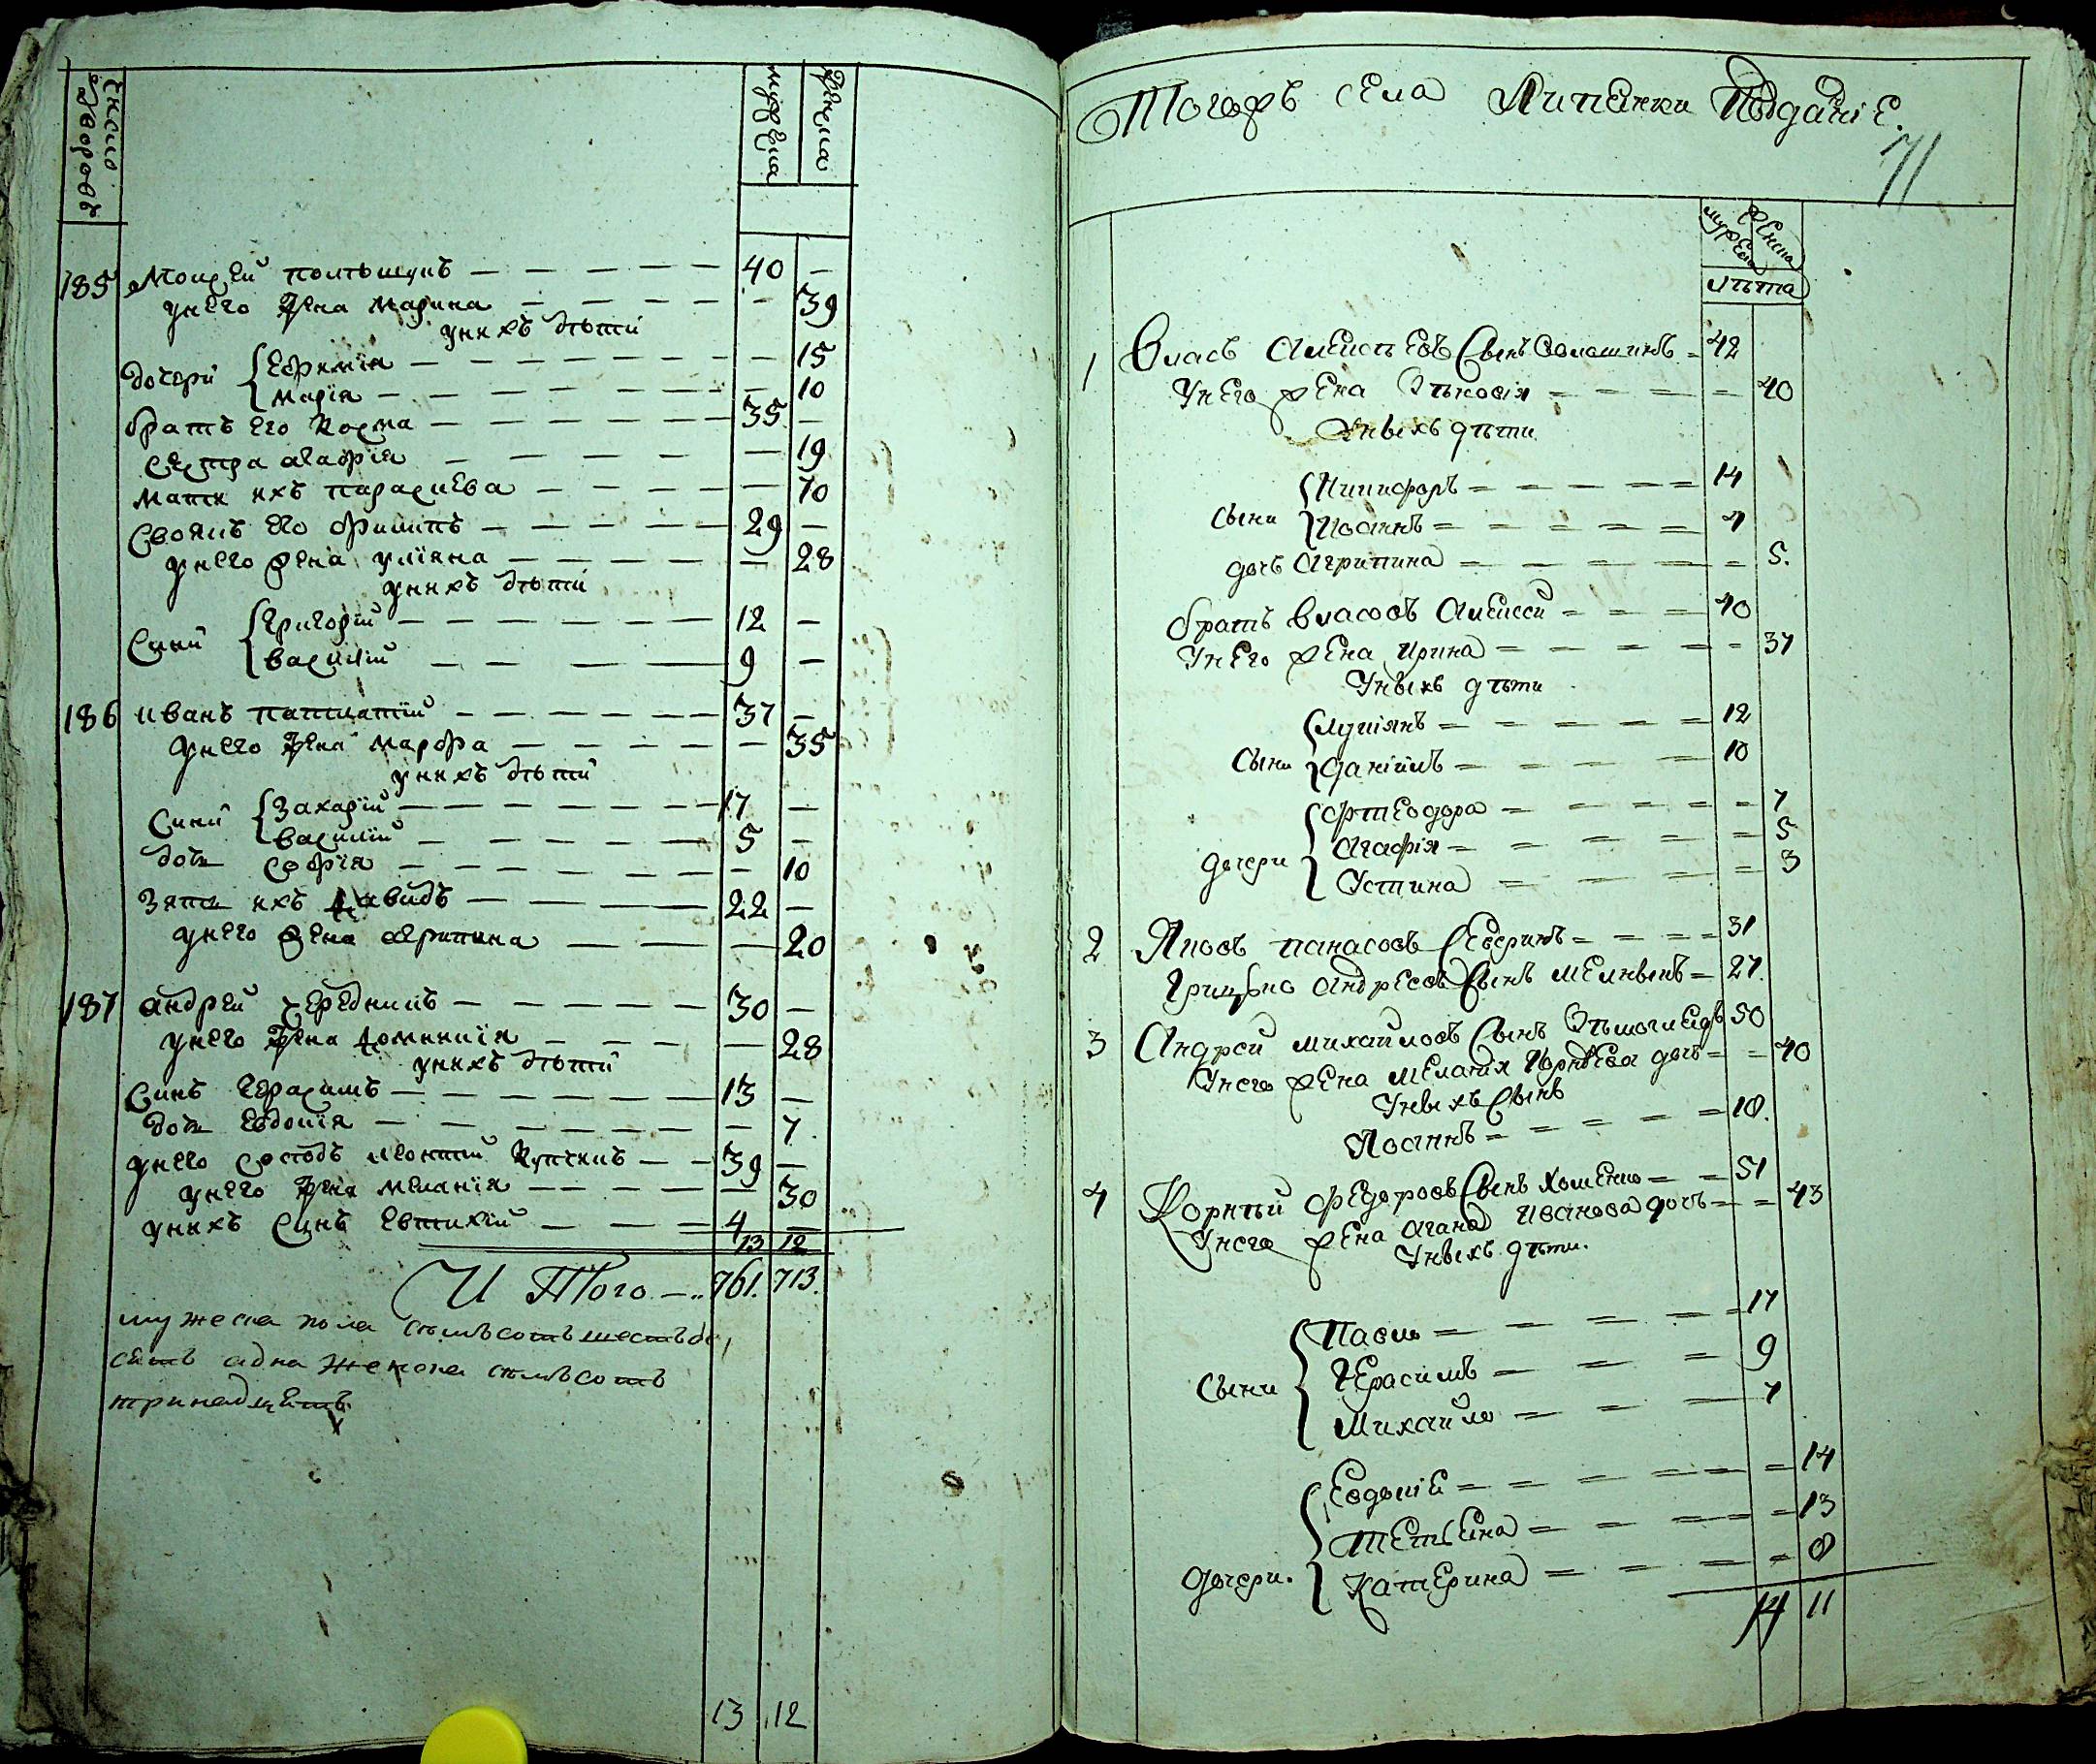 число дворовъ
мужеска
женска
185 Моисей полтышукъ — — — — — 40 —
у него жена марина — — — — — 39
у нихъ дѣти
дочери Ефимїя — — — — — 15
марїя — — — — — 10
братъ его Козма — — — — — 35 —
сестра агафїя — — — — — 19
мати ихъ параскева — — — — 70
своякъ его филипъ — — — — — 29 —
у него жена улїяна — — — — — 28
у нихъ дѣти
Сини Григорїй — — — — — 12 —
василїй — — — — — 9 —
186 иванъ — — — — — 37 —
у него жена марфа — — — — — 35
у нихъ дѣти
Сини Захарїй — — — — — 17 —
василїй — — — — — 5 —
дочь софїя — — — — — 10
зять ихъ давидъ — — — — 22 —
у него жена агрипина — — — 20
187 андрей Чередникъ — — — — 30 —
у него жена домникїя — — — — 28
у нихъ дѣти
Синъ Герасимъ — — — — — 13 —
дочь Евдокїя — — — — — 7
у него сосѣдъ леонтїй Купчикъ — — 39 —
у него жена меланїя — — — — 30
у нихъ Синъ Евтихїй — — — 4 —
13 12
И Того — 761. 713.
мужеска пола семьсотъ шестьде,
сятъ адна женска семьсотъ
тринадцать
13 12
Тогожъ села Липенки Подданїе.
71
мужеска
женска
лѣта
1 Власъ Алексѣевъ Сынъ Волошинъ = 42
У него жена = = = = 40
У ныхъ дѣти
Сыни Никифоръ = = = = = 14
Иоаннъ = = = = = 7
дочь Агрипина = = = = = 5.
братъ власовъ Алексей = = = = 40
У него жена Ирина = = = = = 37
У ныхъ дѣти
Сыни лукїянъ = = = = = 12
Данїилъ = = = = 10
дочери Фтеодора = = = = = 7
Агафїя = = = = = 5
Устина = = = = 3
2 Яковъ панасовъ Северинъ = = = = 31
Грицько Андреевъ Сынъ мелникъ = 27.
3 Андрей михайловъ Сынъ 50
У него жена Мелания Корнѣева дочь = = 40
У ныхъ Сынъ
Иоаннъ = = = = = 10.
4 Корнѣй Федоровъ Сынъ Хоменко = = 51
У него жена Агафа Иванова дочь = = 43
У ныхъ дѣти.
Сыни Павло = = = = = 17
Герасимъ = = = = 9
Михайло = = = 7
дочери. Евдокїе = = = = = 14
Тетьяна = = = = = 13
Катерина = = = = = 8
14 11